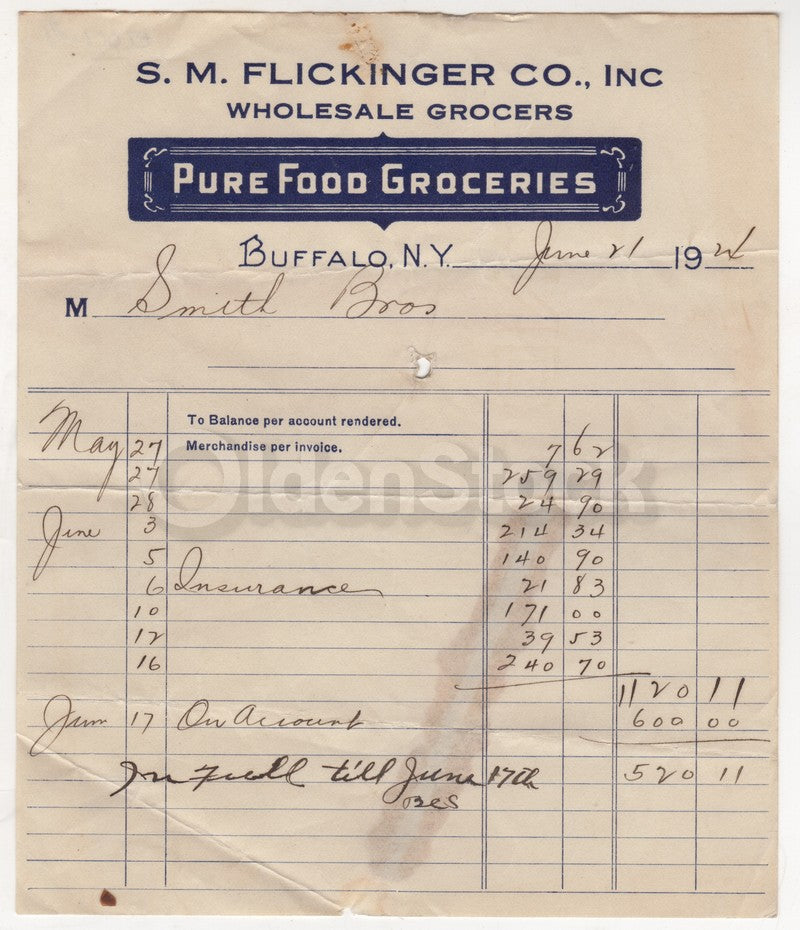 S. M. FLICKINGER CO., INC
WHOLESALE GROCERS
PURE FOOD GROCERIES
BUFFALO, N.Y. June 21 1924
M Smith Bros
To Balance per account rendered.
May 27 Merchandise per invoice. 7 62
27 259 29
OldenStock
28 24 90
June 3 214 34
5 140 90
6 Insurance 21 83
10 171 00
12 39 53
16 240 70
1120 11
June 17 On Account 600 00
In Full till June 17th 520 11